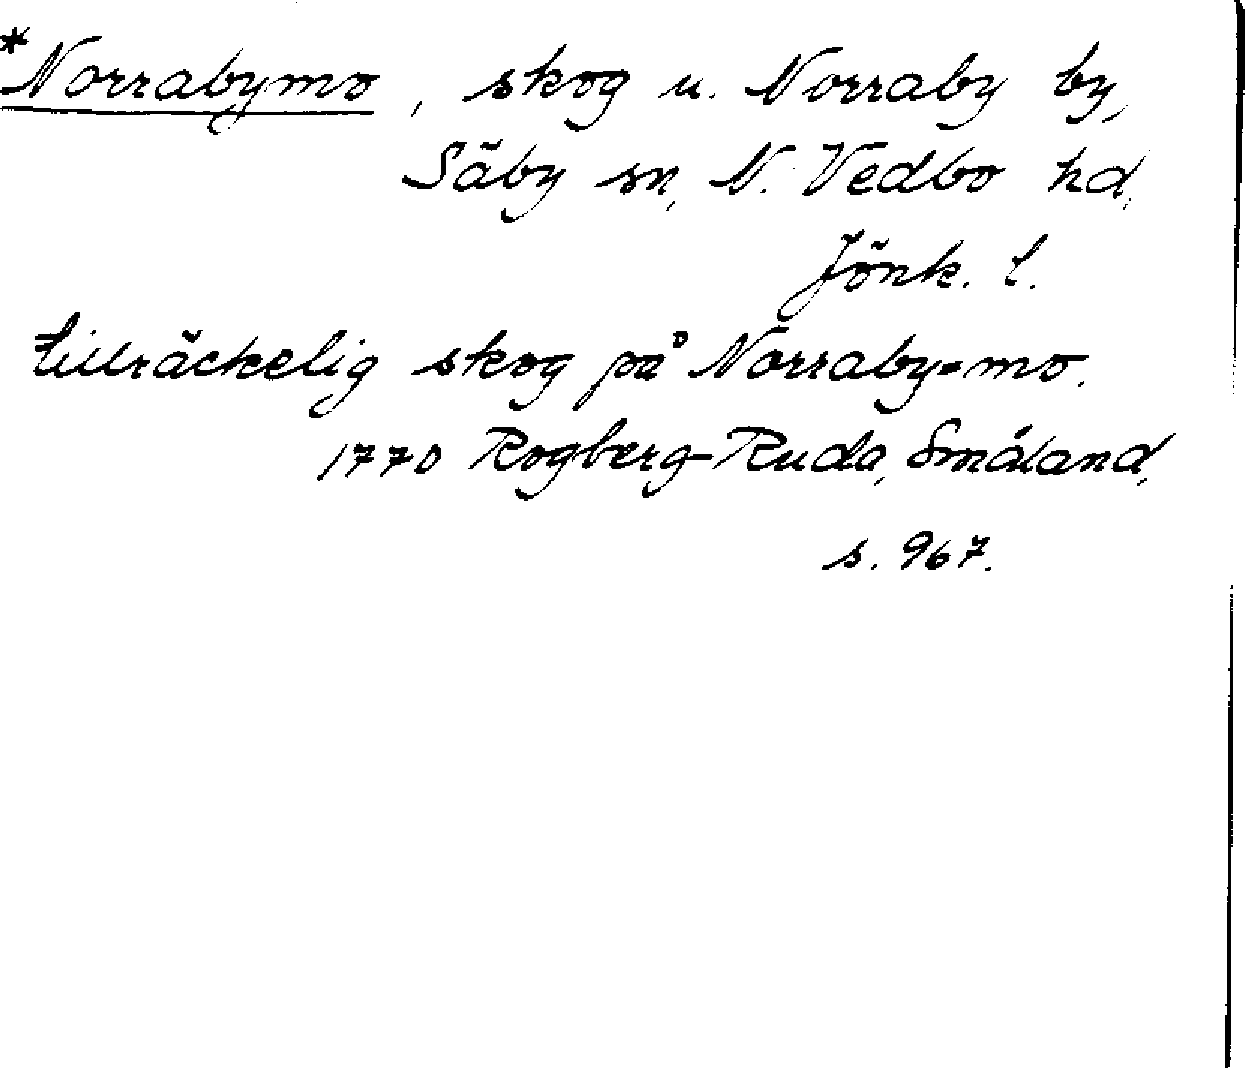 *Norrabymo, skog u. Norraby by,
Säby sn, N. Vedbo hd,
Jönk. l.
tillräckelig skog på Norraby=mo.
1770 Rogberg-Ruda, Småland,
s. 967.